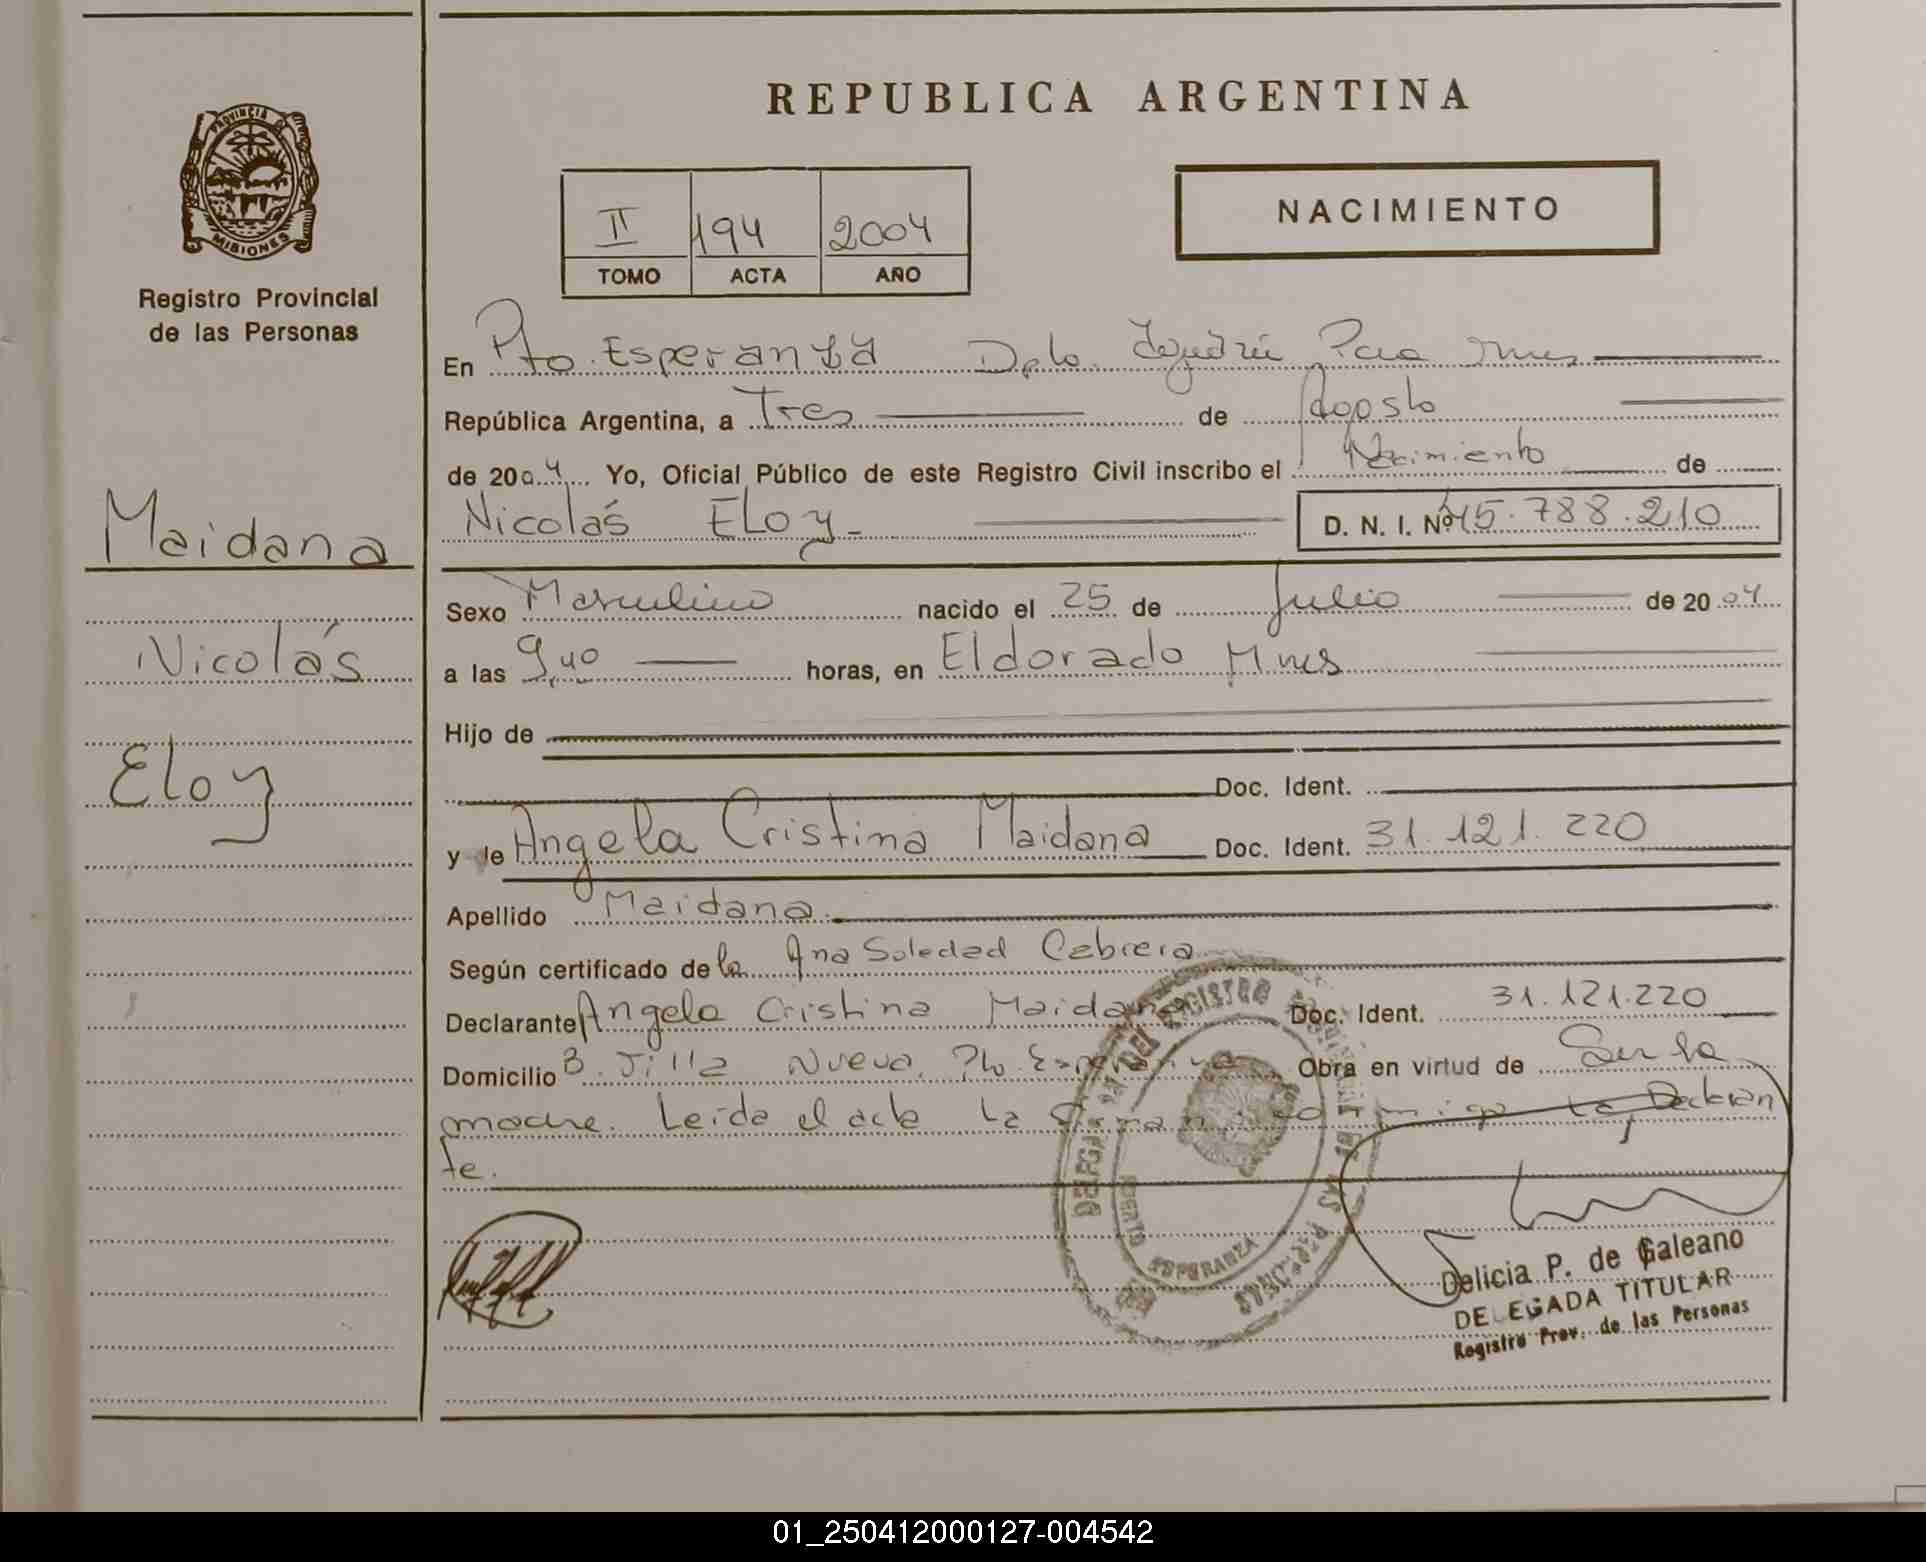 REPUBLICA ARGENTINA
PROVINCIA DE
MISIONES
Registro Provincial
de las Personas
II 194 2004
TOMO ACTA AÑO
NACIMIENTO
En Pto. Esperanza Dpto. Iguazú Mnes
República Argentina, a Tres de Agosto
de 2004 Yo, Oficial Público de este Registro Civil inscribo el Nacimiento de
Nicolás Eloy D. N. I. Nº 45.788.210
Maidana
Nicolás
Eloy
Sexo Masculino nacido el 25 de Julio de 2004
a las 9,40 horas, en Eldorado Mnes
Hijo de
Doc. Ident.
y de Angela Cristina Maidana Doc. Ident. 31.121.220
Apellido Maidana
Según certificado de la Ana Soledad Cabrera
Declarante Angela Cristina Maidana Doc. Ident. 31.121.220
Domicilio B. Villa Nueva. Pto. Esperanza Obra en virtud de Ser la
madre. Leída el acta La Firma conmigo La Declaran
te.
DELEGACION DEL REGISTRO DE LAS PERSONAS
PUERTO ESPERANZA
Delicia P. de Galeano
DELEGADA TITULAR
Registro Prov. de las Personas
01_250412000127-004542